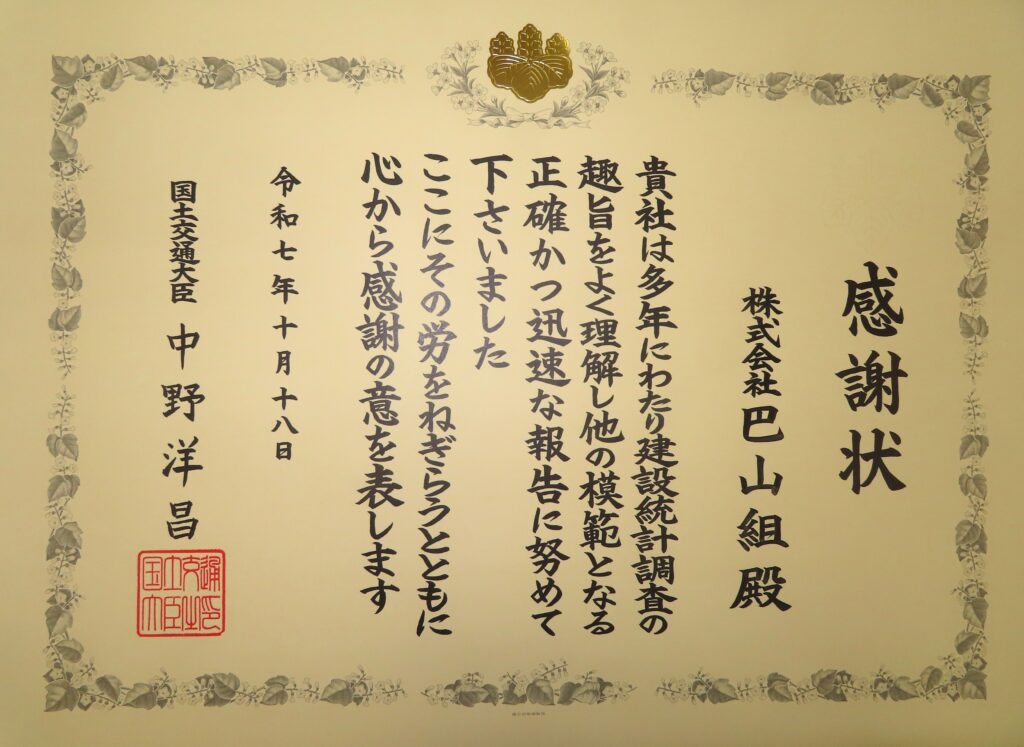 感謝状
株式会社 巴山組殿
貴社は多年にわたり建設統計調査の
趣旨をよく理解し他の模範となる
正確かつ迅速な報告に努めて
下さいました
ここにその労をねぎらうとともに
心から感謝の意を表します
令和七年十月十八日
国土交通大臣 中野洋昌
国土交通大臣之印